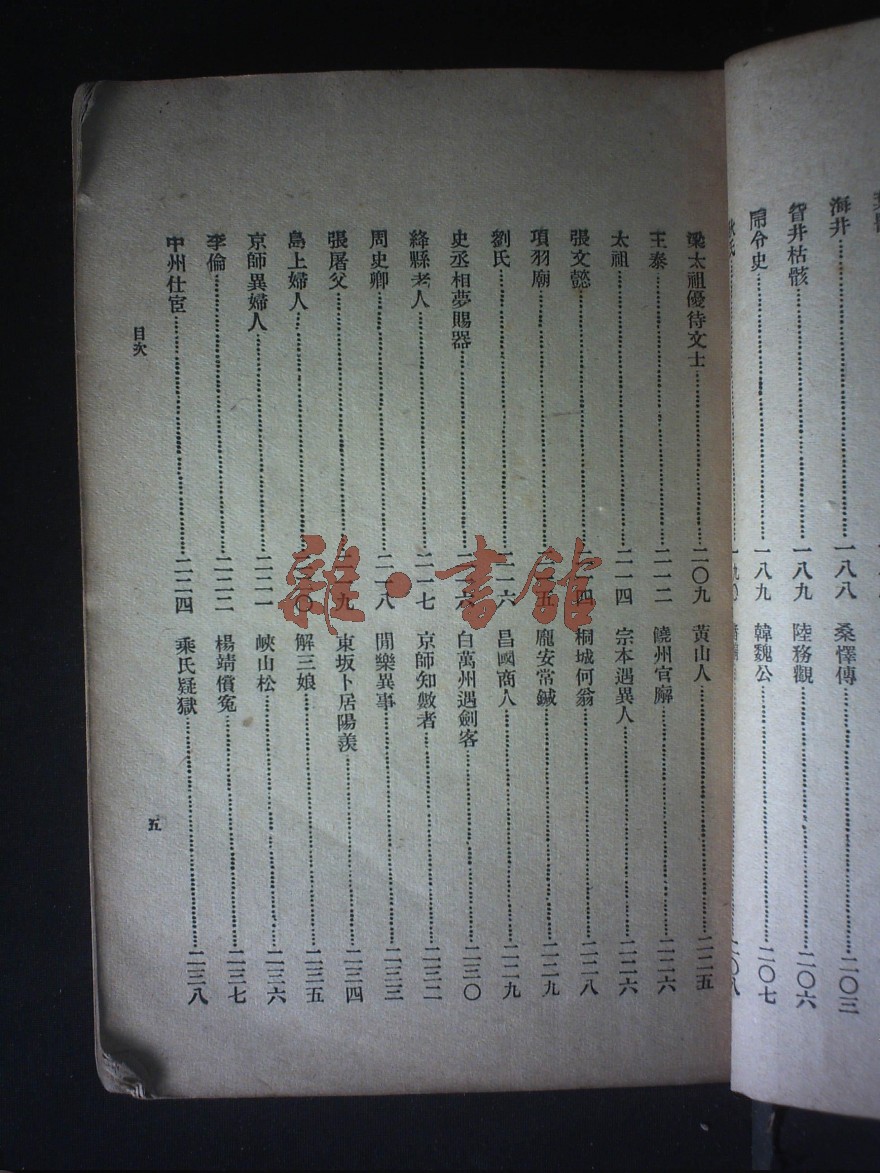 海井……一八八 桑懌傳……二〇三
眢井枯骸……一八九 陸務觀……二〇六
令史……一八九 韓魏公……二〇七
二〇八
梁太祖優待文士……二〇九 黃山人……二二五
王泰……二一二 饒州官廨……二二六
太祖……二一四 宗本遇異人……二二六
張文懿……二一四 桐城何翁……二二八
項羽廟……二一五 龐安常鍼……二二九
劉氏……二一六 昌國商人……二二九
史丞相夢賜器……二一六 白萬州遇劍客……二三〇
絳縣老人……二一七 京師知數者……二三二
周史卿……二一八 閒樂異事……二三三
張屠父……二一九 東坂卜居陽羨……二三四
島上婦人……二二〇 解三娘……二三五
京師異婦人……二二一 峽山松……二三六
李倫……二二二 楊靖償冤……二三七
中州仕宦……二二四 乘氏疑獄……二三八
目次
五
雜·書館